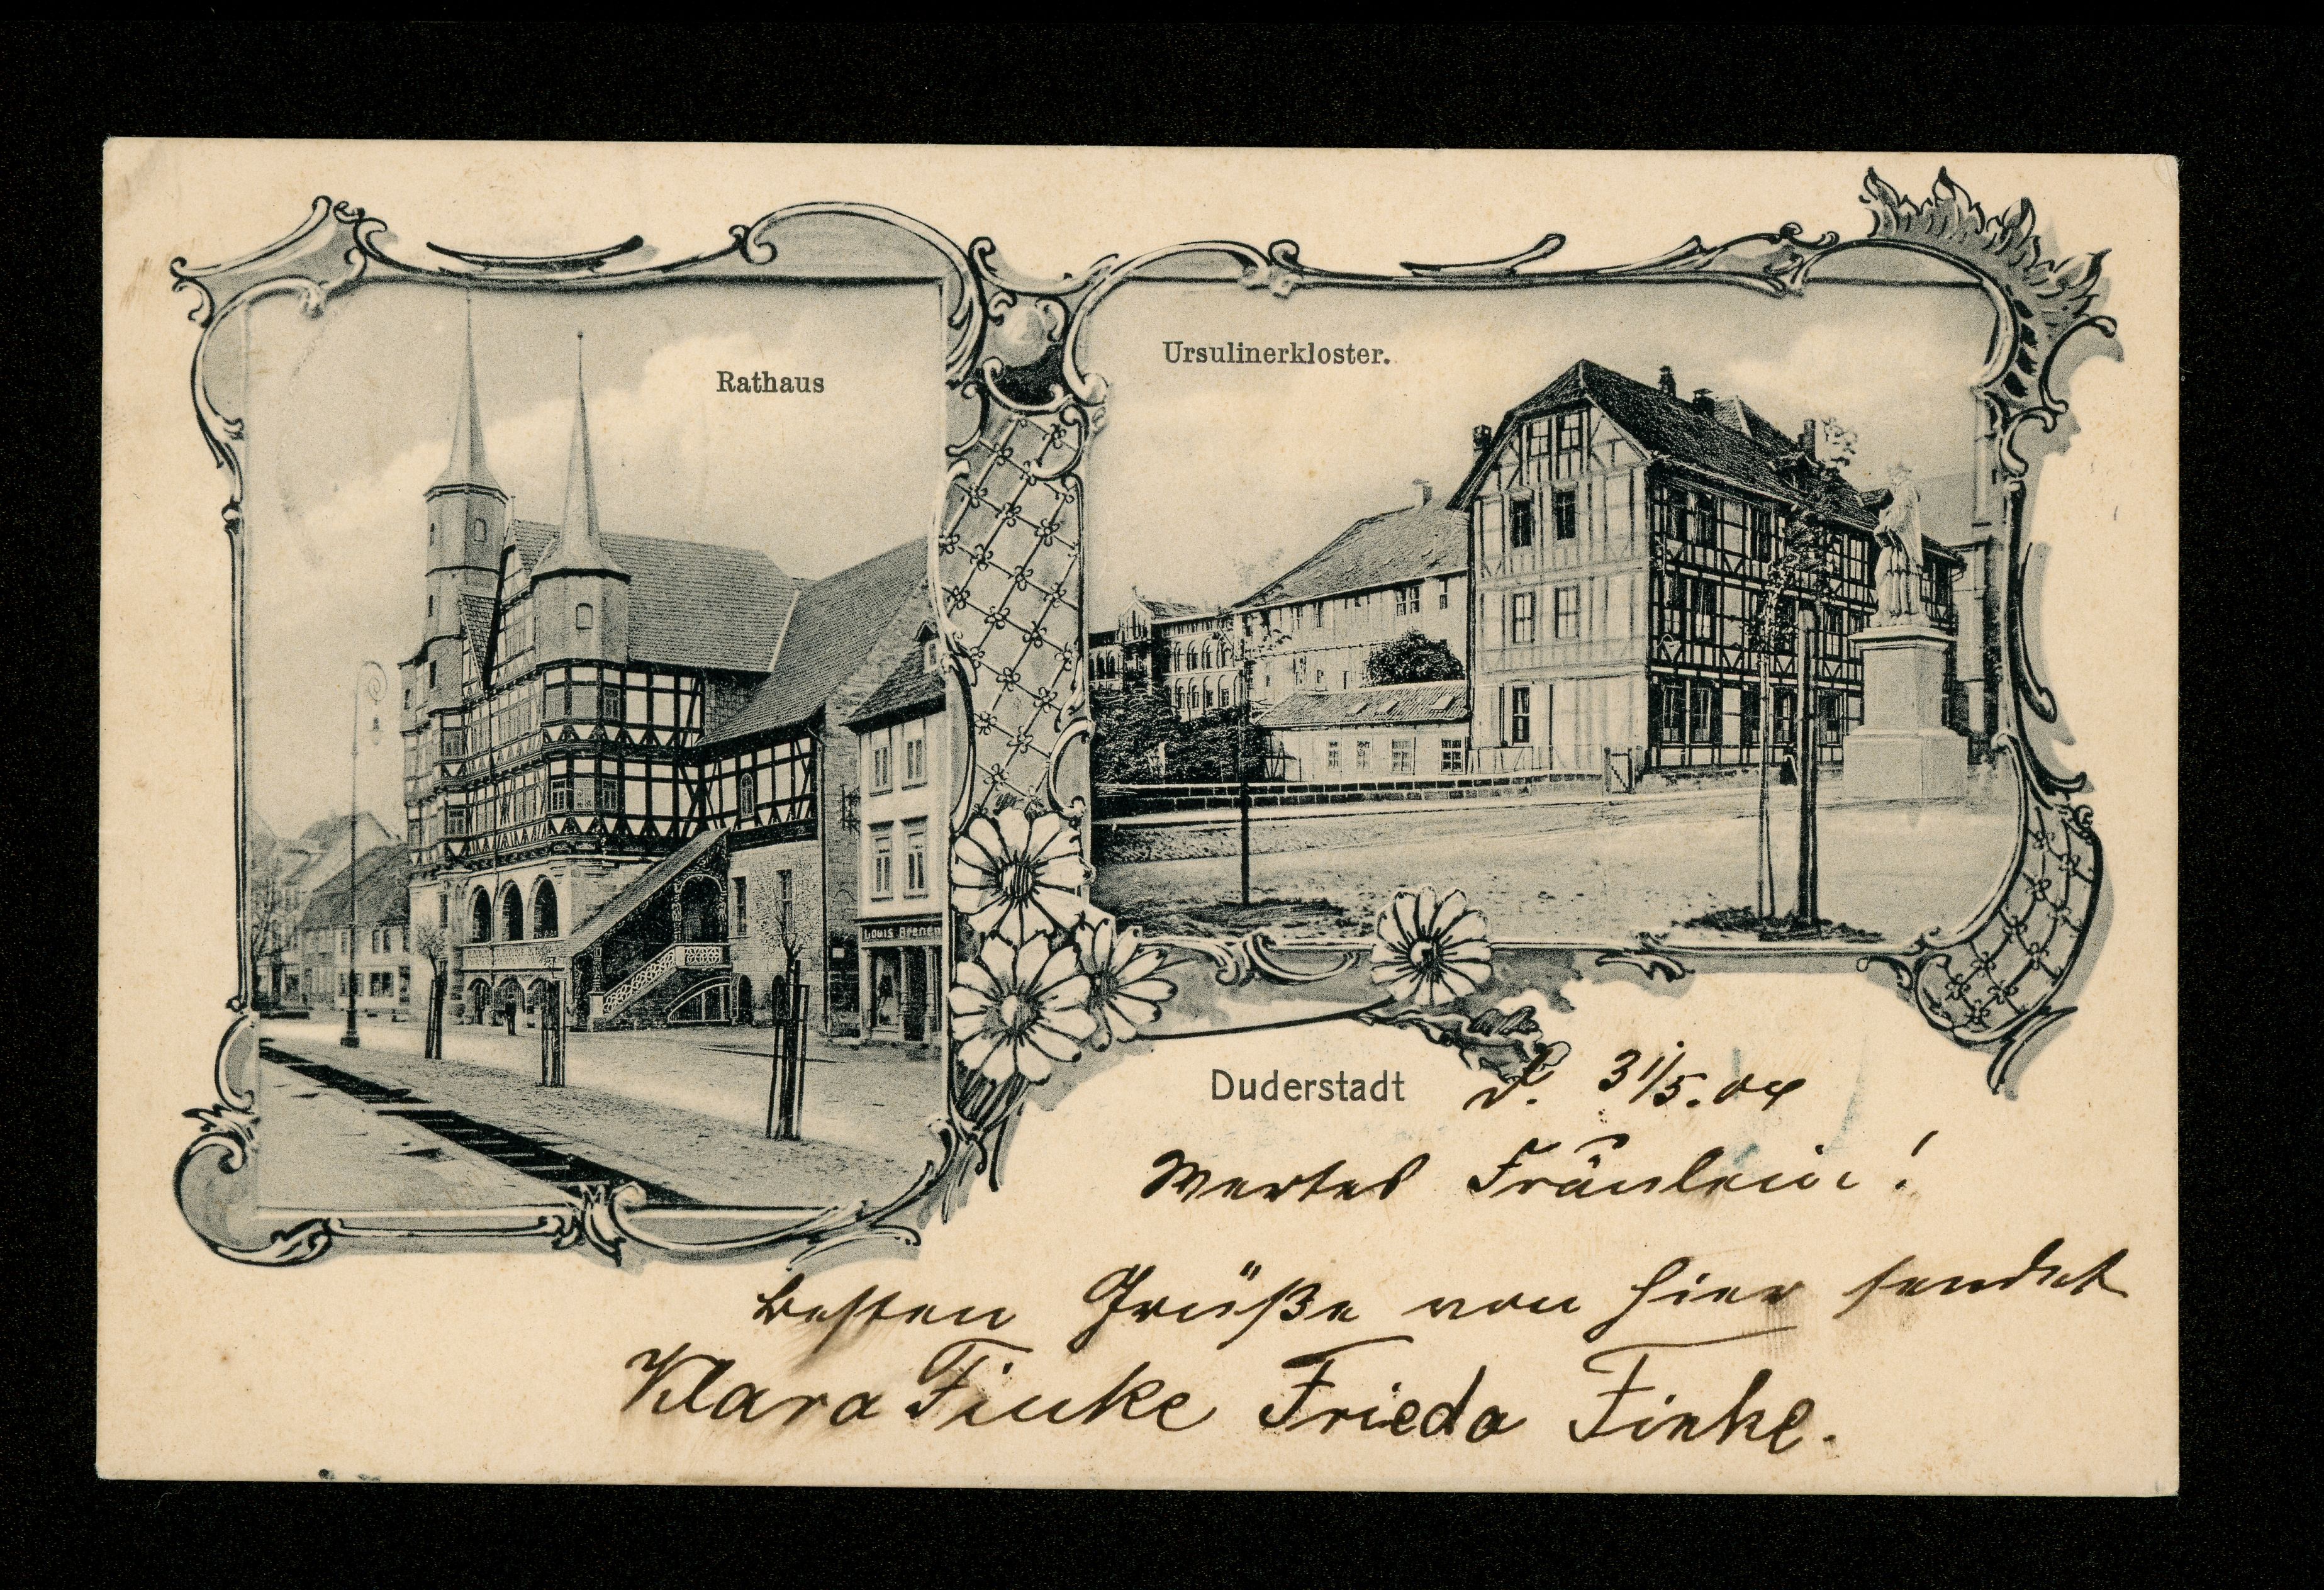 Rathaus
Ursulinerkloster.
Louis Brenen
Duderstadt d. 31/5. 04
Wertes Fräulein!
besten Grüße von hier sendet
Klara Finke Frieda Finke.